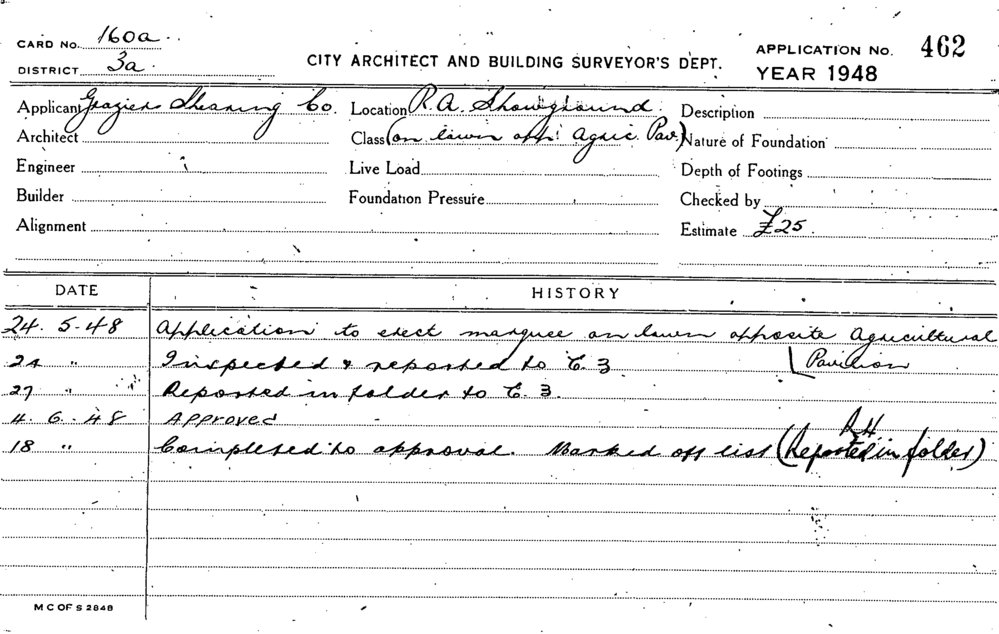 CARD No. 160a
APPLICATION No. 462
DISTRICT 3a
CITY ARCHITECT AND BUILDING SURVEYOR'S DEPT.
YEAR 1948
Applicant Graziers Shearing Co. Location R.A. Showground Description
Architect Class (on lawn opp. Agric. Pav.) Nature of Foundation
Engineer Live Load Depth of Footings
Builder Foundation Pressure Checked by
Alignment Estimate £25
DATE HISTORY
24. 5. 48 Application to erect marquee on lawn opposite Agricultural
24 " Inspected & reported to C 3. Pavilion
27 " Reported in folder to C. 3.
4. 6. 48 Approved
18 " Completed to approval. Marked off list (Reported in folder)
M C OF S 2848